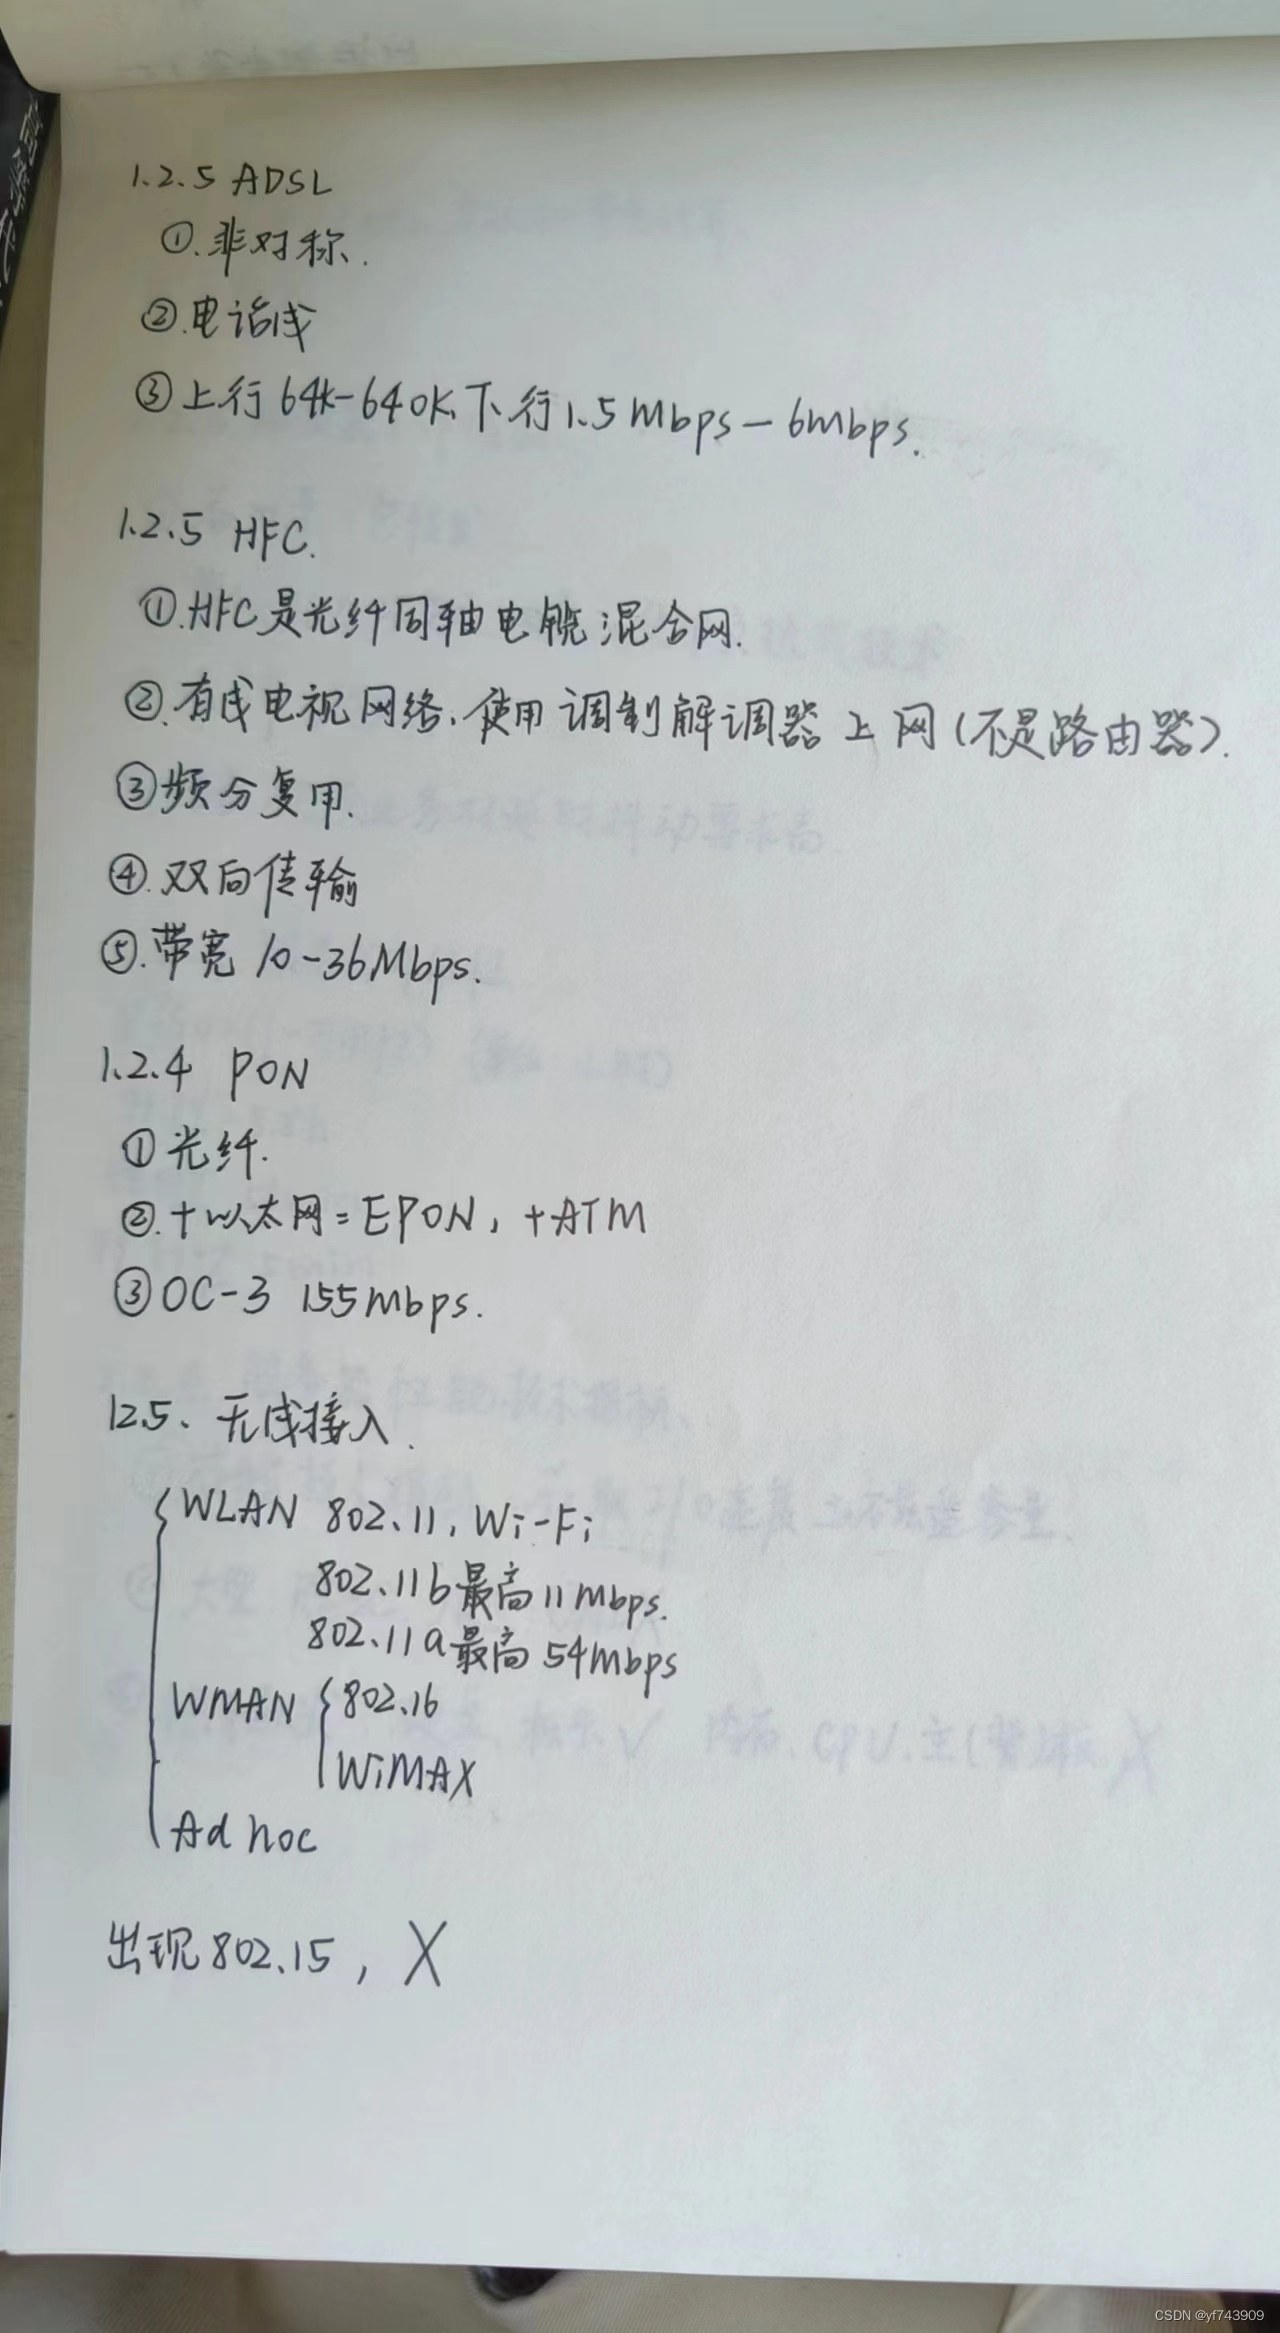 1.2.5 ADSL
①.非对称.
②.电话线
③上行64k-640k、下行1.5Mbps-6mbps.
1.2.5 HFC.
①.HFC是光纤同轴电缆混合网.
②.有线电视网络、使用调制解调器上网(不是路由器).
③频分复用.
④.双向传输
⑤.带宽10-36Mbps.
1.2.4 PON
①光纤.
②.+以太网=EPON, +ATM
③OC-3 155mbps.
12.5、无线接入.
WLAN 802.11, Wi-Fi
802.11b最高11mbps.
802.11a最高54mbps
WMAN 802.16
WiMAX
Ad hoc
出现802.15, X
CSDN @yf743909